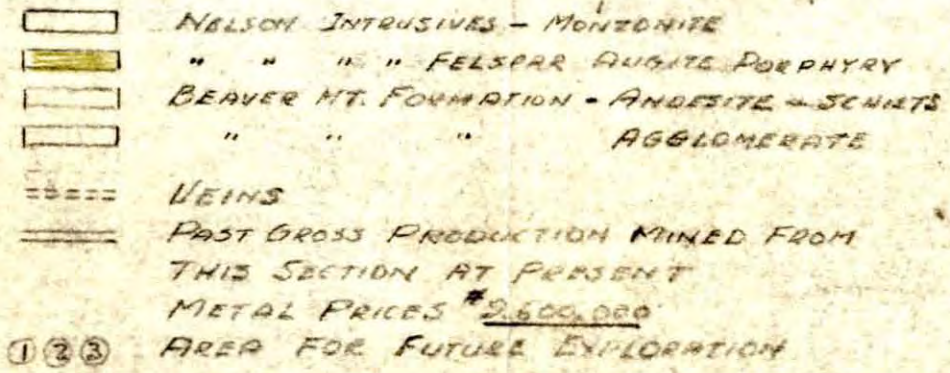 NELSON INTRUSIVES - MONZONITE
" " " " FELSPAR AUGITE PORPHYRY
BEAVER MT. FORMATION - ANDESITE - SCHISTS
" " " AGGLOMERATE
VEINS
PAST GROSS PRODUCTION MINED FROM
THIS SECTION AT PRESENT
METAL PRICES
① ② ③ AREA FOR FUTURE EXPLORATION